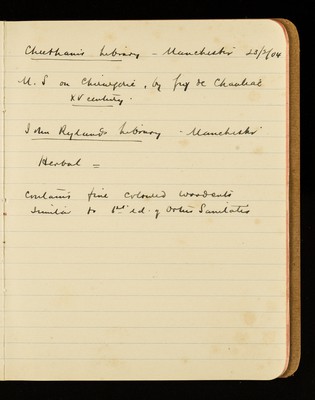 Cheetham's Library - Manchester 23/3/04
M. S on Chirurgerie, by Guy de Chauliac
XV century.
John Rylands Library - Manchester
Herbal =
Contains fine coloured woodcuts
similar to 1st ed. of Ortus Sanitatis